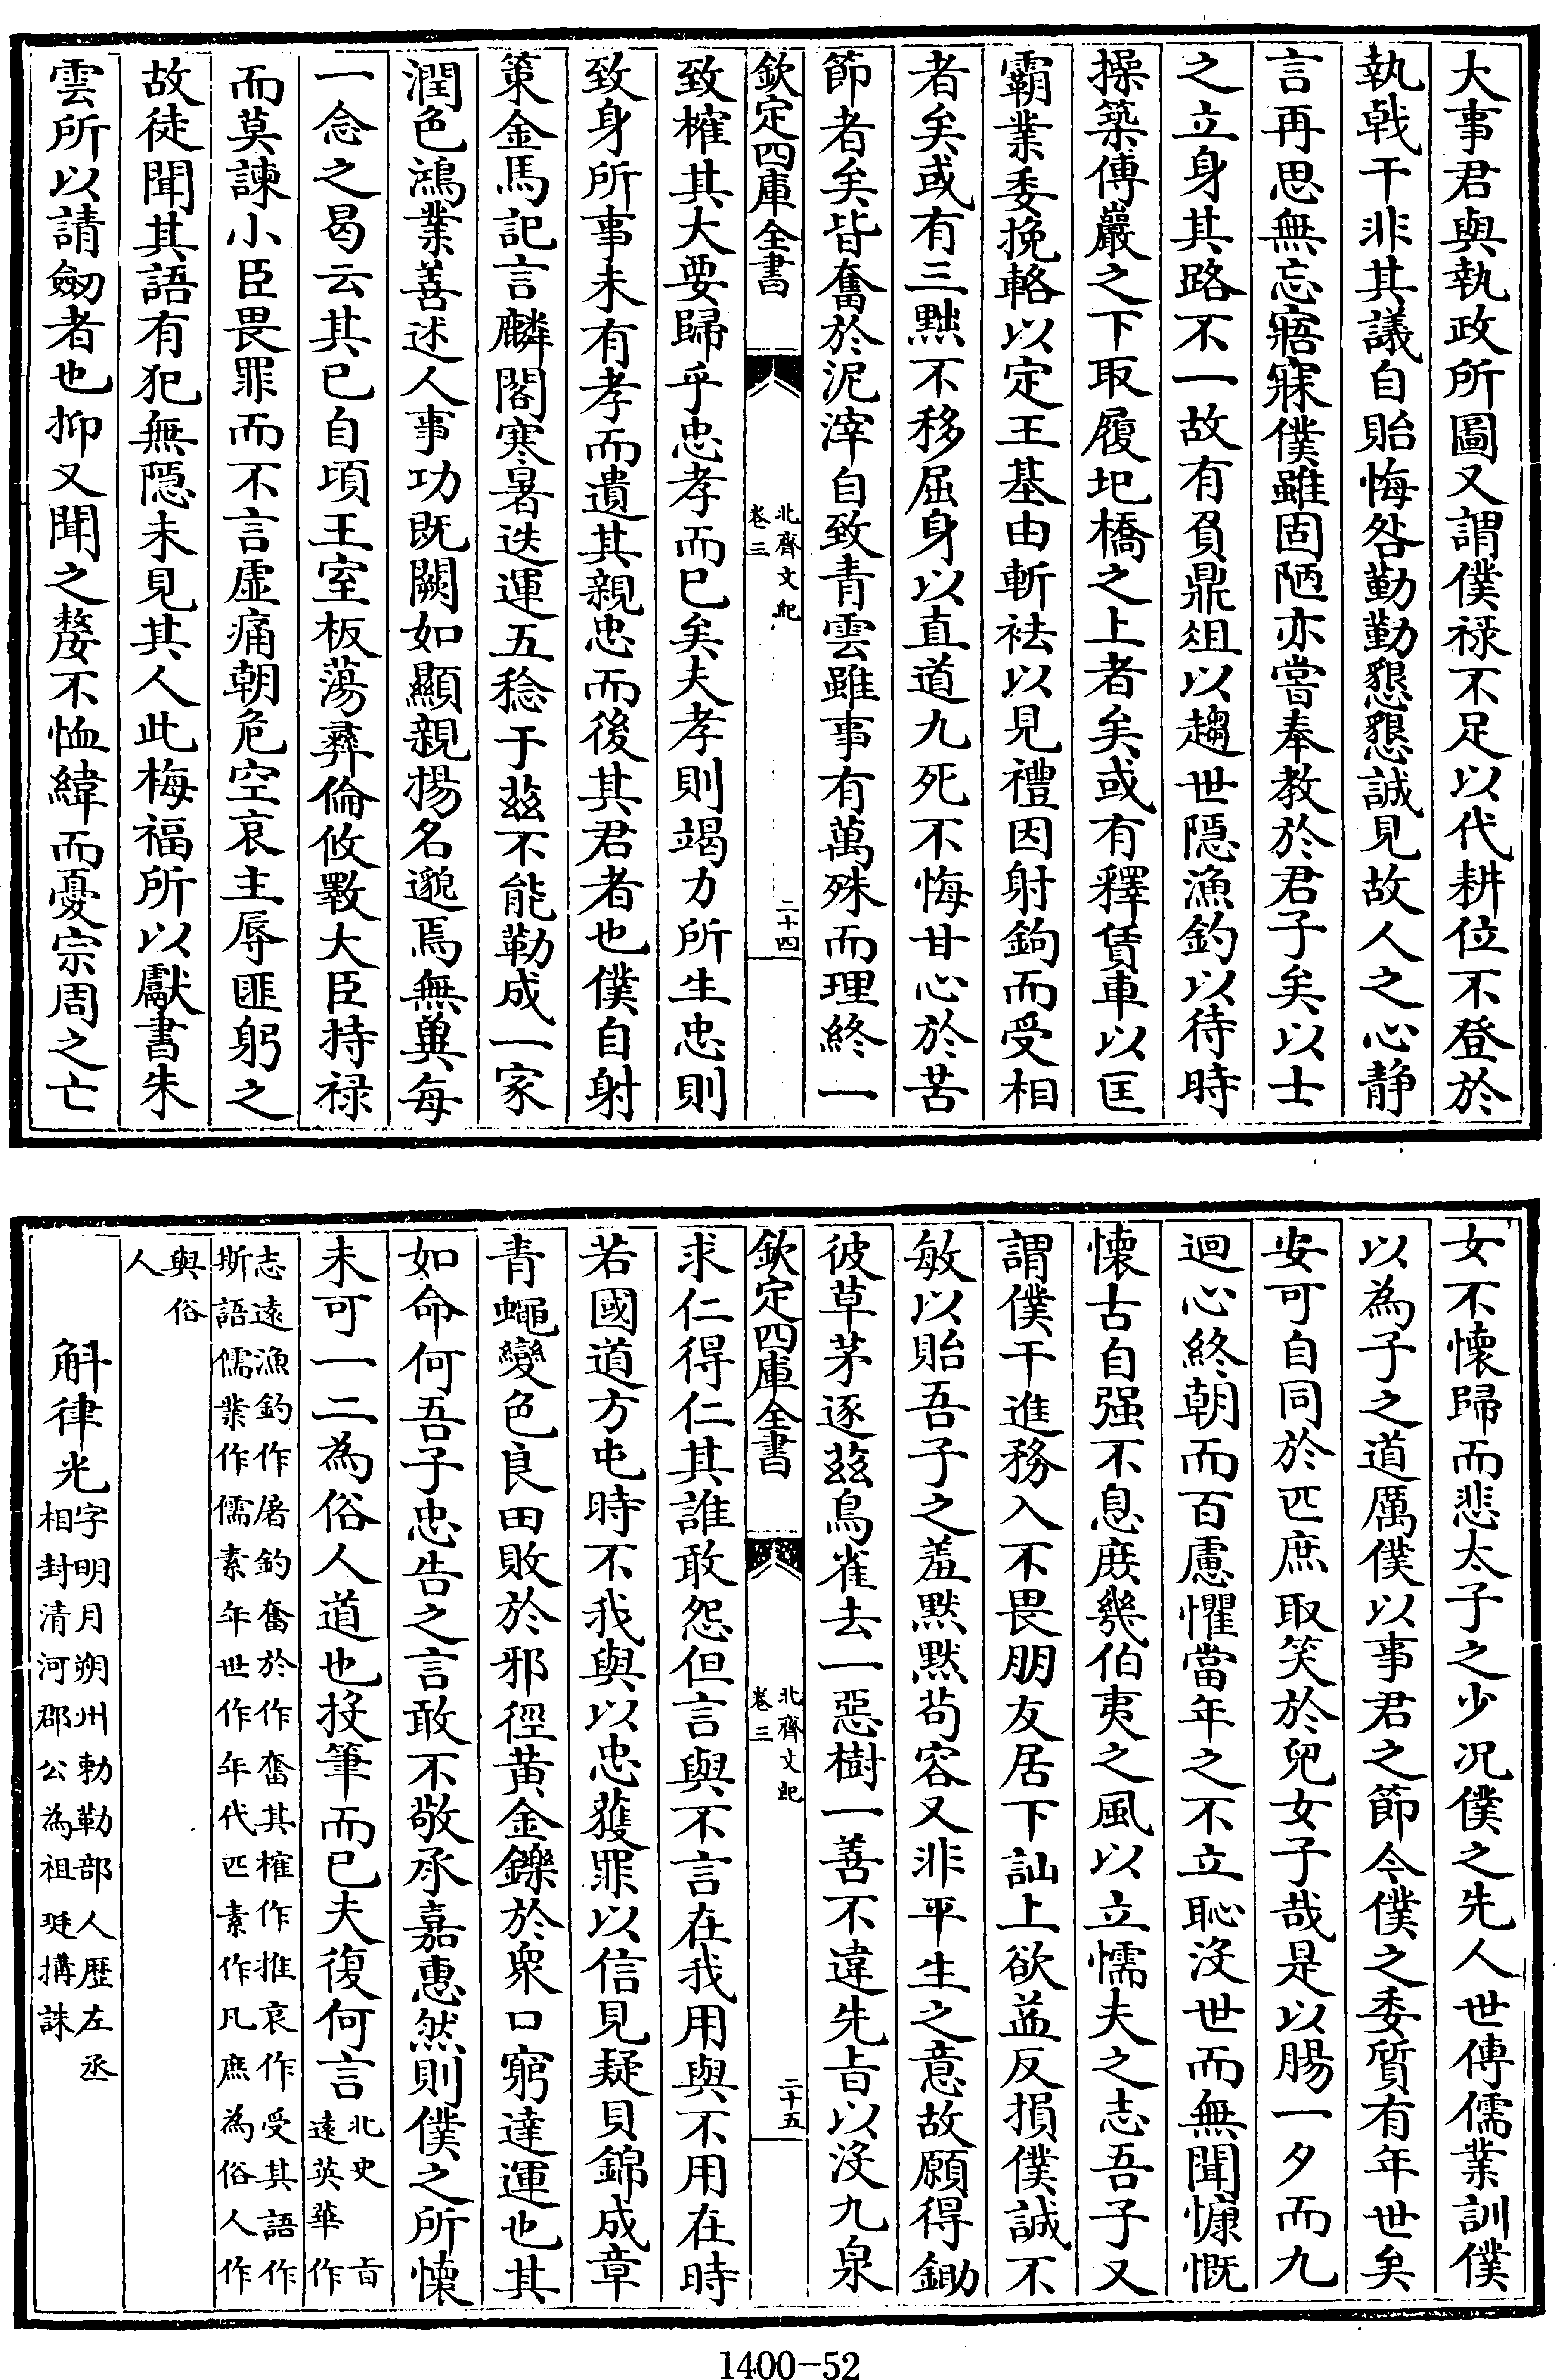 大事君與執政所圖又謂僕禄不足以代耕位不登於
執戟干非其議自貽悔咎勤勤懇懇誠見故人之心静
言再思無忘寤寐僕雖固陋亦嘗奉教於君子矣以士
之立身其路不一故有負鼎俎以趨世隱漁釣以待時
操築傅巖之下取履圯橋之上者矣或有釋賃車以匡
霸業委挽輅以定王基由斬袪以見禮因射鉤而受相
者矣或有三黜不移屈身以直道九死不悔甘心於苦
節者矣皆奮於泥滓自致青雲雖事有萬殊而理終一
欽定四庫全書
北齊文紀
卷三
二十四
致榷其大要歸乎忠孝而已矣夫孝則竭力所生忠則
致身所事未有孝而遺其親忠而後其君者也僕自射
策金馬記言麟閣寒暑迭運五稔于兹不能勒成一家
潤色鴻業善述人事功既闕如顯親揚名邈焉無兾每
一念之曷云其已自頃王室板蕩彛倫攸斁大臣持禄
而莫諫小臣畏罪而不言虚痛朝危空哀主辱匪躬之
故徒聞其語有犯無隱未見其人此梅福所以獻書朱
雲所以請劒者也抑又聞之嫠不恤緯而憂宗周之亡
女不懷歸而悲太子之少况僕之先人世傳儒業訓僕
以為子之道厲僕以事君之節今僕之委質有年世矣
安可自同於匹庶取笑於兒女子哉是以腸一夕而九
迴心終朝而百慮懼當年之不立恥没世而無聞慷慨
懷古自强不息庶幾伯夷之風以立懦夫之志吾子又
謂僕干進務入不畏朋友居下訕上欲益反損僕誠不
敏以貽吾子之羞默默茍容又非平生之意故願得鋤
彼草茅逐兹鳥雀去一惡樹一善不違先㫖以没九泉
欽定四庫全書
北齊文紀
卷三
二十五
求仁得仁其誰敢怨但言與不言在我用與不用在時
若國道方屯時不我與以忠獲罪以信見疑貝錦成章
青蠅變色良田敗於邪徑黄金鑠於衆口窮達運也其
如命何吾子忠告之言敢不敬承嘉惠然則僕之所懷
未可一二為俗人道也投筆而已夫復何言
北史 㫖
遠英華 作
志遠漁釣作屠釣奮於作奮其榷作推哀作受其語作
斯語儒業作儒素年世作年代匹素作凡庶為俗人作
與俗
人
斛律光
字明月朔州勅勒部人歴左丞
相封清河郡公為祖珽搆誅
1400-52